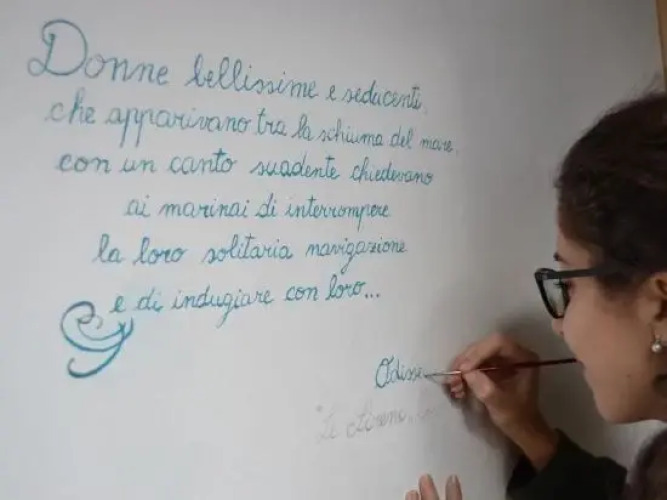 Donne bellissime e seducenti,
che apparivano tra la schiuma del mare,
con un canto suadente chiedevano
ai marinai di interrompere
la loro solitaria navigazione
e di indugiare con loro...
Odisse
"Le Sirene